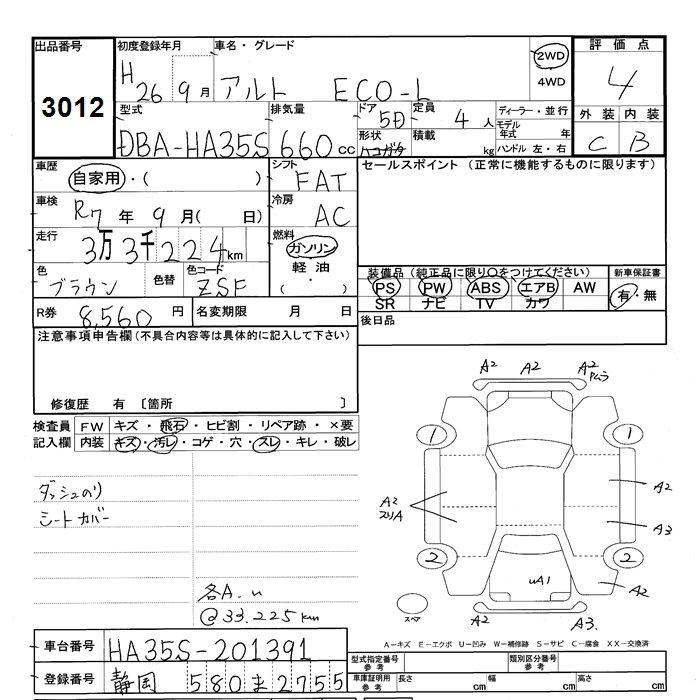 出品番号 3012
初度登録年月 H26 9月
車名・グレード アルト ECO-L
2WD
4WD
評価点 4
型式 DBA-HA35S
排気量 660 cc
ドア 5D
形状 ハコガタ
定員 4人
積載 kg
ディーラー・並行
モデル年式 年
ハンドル 左・右
外装 C
内装 B
車歴 自家用・( )
シフト FAT
セールスポイント (正常に機能するものに限ります)
車検 R7年 9月( 日)
冷房 AC
走行 3万3千224km
燃料 ガソリン
軽油
( ・ )
色 ブラウン
色替
色コード ZSF
装備品(純正品に限り○をつけてください)
新車保証書
PS PW ABS エアB AW
SR ナビ TV カワ
有・無
R券 8,560円
名変期限 月 日
後日品
注意事項申告欄(不具合内容等は具体的に記入して下さい)
修復歴 有 〔箇所 〕
検査員記入欄
FW キズ・飛石・ヒビ割・リペア跡・×要
内装 キズ・汚レ・コゲ・穴・スレ・キレ・破レ
ダッシュのり
シートカバー
各A.u
@33.225km
A2 A2 A2
1 1
A2
A2
A3
2 2
uA1
A2
スペア
A2 A3.
A-キズ E-エクボ U-凹み W-補修跡 S-サビ C-腐食 XX-交換済
車台番号 HA35S-201391
型式指定番号 参考
類別区分番号 参考
登録番号 静岡 580 ま 2755
車庫証明用 参考
長さ cm
幅 cm
高さ cm